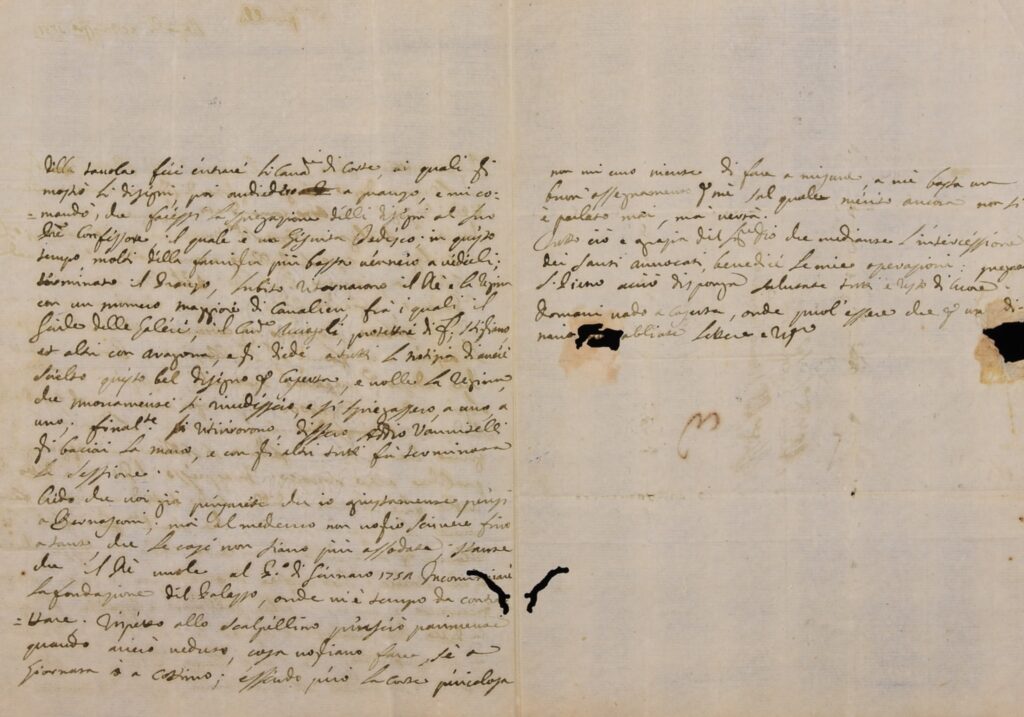 della tavola fece entrare li Cavri di Corte, ai quali si
mostrò li disegni, poi andiedero a pranzo, e mi co-
=mandò, che facessi la spiegazione delli disegni al suo
Confessore il quale è un Gesuita Tedesco; in questo
tempo molti della famiglia più bassa vennero a vederli;
terminato il pranzo, subito ritornarono il Rè e la Regina
con un numero maggiore di Cavalieri, frà i quali il
Gnle delle Galere, il Protettre di S. Stefano
et altri con Aragona, e si diede a tutti la notizia di avere
scielto questo bel disegno p Caserta, e volle la Regina
che nuovamente si rivedessero, e si spiegassero, a uno, a
uno; finalte si ritirorono dissero Addio Vanvitelli
gli baciai la mano, e con gli altri tutti fù terminata
la sessione.
Credo che voi già pensarete che io giustamente pensi
a Bernasconi; mai al medesimo non voglio scrivere fino
a tanto, che le cose non siano più assodate; stante
che il Rè vuole al P.º di Gennaro 1751 Incominciare
la fondazione del Palazzo, onde vi è tempo da contra
=ttare. Rispetto allo scalpellino penserò parimenti
quando averò veduto, cosa vogliano fare, sè a
Giornata ò a Cottimo; essendo però la Corte pericolosa
non mi curo niente di fare a misure, a me basta un
buon assegnamento p me sul quale niente ancora non si
è parlato mai, mà verrà.
Tutto ciò è grazia del Sig. Iddio che mediante l'intercessione
dei Santi avvocati, benedice le mie operazioni; pregate
S. Pietro acciò disponga salutate tutti e resto di cuore.
domani vado a Caserta, onde puol'essere che p un di-
nario abbiate lettere e righe